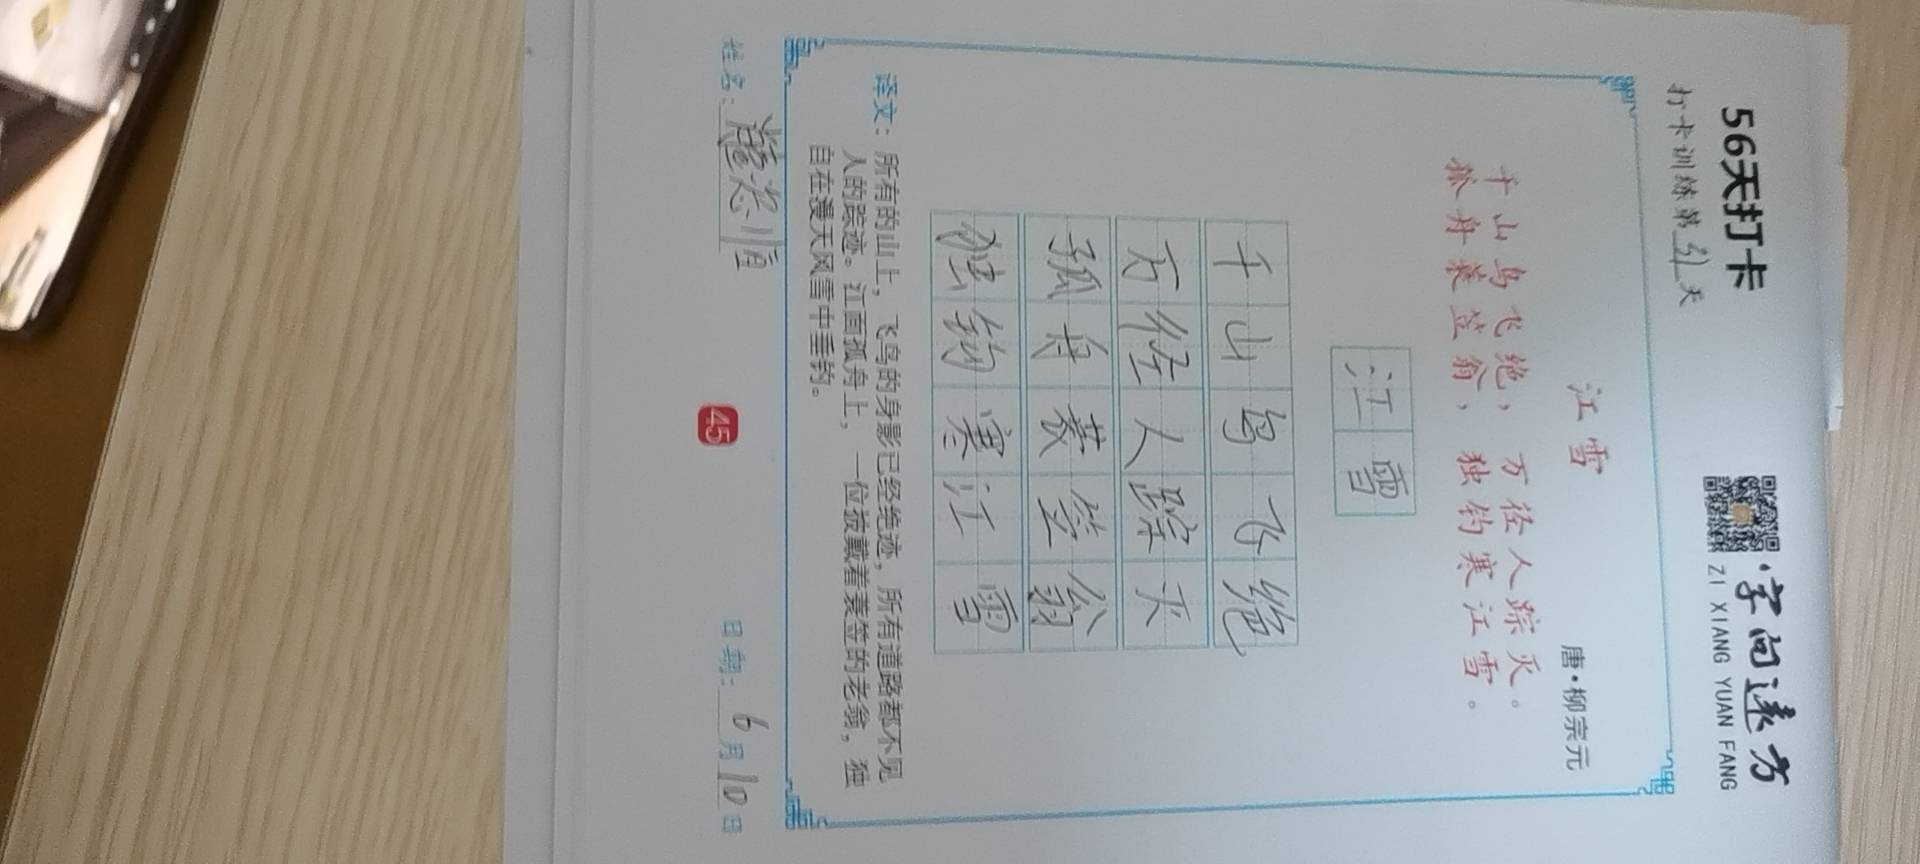 56天打卡
字向远方
ZI XIANG YUAN FANG
打卡训练第31天
江雪
唐·柳宗元
千山鸟飞绝，万径人踪灭。
孤舟蓑笠翁，独钓寒江雪。
江雪
千山鸟飞绝
万径人踪灭
孤舟蓑笠翁
独钓寒江雪
译文：所有的山上，飞鸟的身影已经绝迹，所有道路都不见
人的踪迹。江面孤舟上，一位披戴着蓑笠的老翁，独
自在漫天风雪中垂钓。
姓名：
日期：6月10日
45